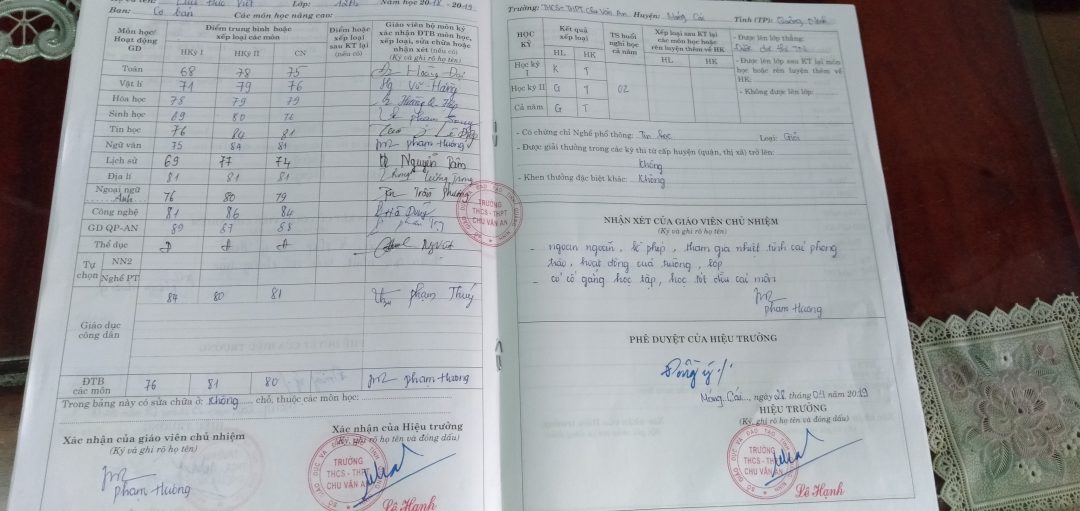 Năm học 2018 - 2019
Ban: Cơ bản Các môn học nâng cao:
Môn học/ Hoạt động GD
Điểm trung bình hoặc xếp loại các môn
HKỳ I HKỳ II CN
Điểm hoặc xếp loại sau KT lại (nếu có)
Giáo viên bộ môn ký xác nhận ĐTB môn học, xếp loại, sửa chữa hoặc nhận xét (nếu có)
(Ký và ghi rõ họ tên)
Toán 68 78 75
Vật lí 71 79 76 Vũ Hằng
Hóa học 78 79 79
Sinh học 69 80 76
Tin học 76 84 81
Ngữ văn 75 84 81 Phạm Hương
Lịch sử 69 77 74 Nguyễn Tâm
Địa lí 81 81 81
Ngoại ngữ Anh 76 80 79 Trần Phương
Công nghệ 81 86 84
GD QP-AN 89 87 88
Thể dục Đ Đ Đ
Tự chọn
NN2
Nghề PT
Giáo dục công dân 84 80 81 phạm Thuý
ĐTB các môn 76 81 80 phạm Hương
Trong bảng này có sửa chữa ở: Không chỗ, thuộc các môn học:
Xác nhận của giáo viên chủ nhiệm
(Ký và ghi rõ họ tên)
phạm Hương
Xác nhận của Hiệu trưởng
(Ký, ghi rõ họ tên và đóng dấu)
TRƯỜNG
THCS - THPT
CHU VĂN AN
Lê Hạnh
TRƯỜNG
THCS - THPT
CHU VĂN AN
Trường: THCS-THPT Chu Văn An Huyện: Móng Cái Tỉnh (TP): Quảng Ninh
HỌC KỲ
Kết quả xếp loại
HL HK
TS buổi nghỉ học cả năm
Xếp loại sau KT lại các môn học hoặc rèn luyện thêm về HK
HL HK
Học kỳ I K T
Học kỳ II G T 02
Cả năm G T
- Được lên lớp thẳng:
- Được lên lớp sau KT lại môn học hoặc rèn luyện thêm về HK:
- Không được lên lớp:
- Có chứng chỉ Nghề phổ thông: Tin học Loại: Giỏi
- Được giải thưởng trong các kỳ thi từ cấp huyện (quận, thị xã) trở lên:
Không
- Khen thưởng đặc biệt khác: Không
NHẬN XÉT CỦA GIÁO VIÊN CHỦ NHIỆM
(Ký và ghi rõ họ tên)
- ngoan ngoãn, lễ phép, tham gia nhiệt tình các phong
trào, hoạt động của trường, lớp
- có cố gắng học tập, học tốt đều các môn
phạm Hương
PHÊ DUYỆT CỦA HIỆU TRƯỞNG
Đồng ý ./.
Móng Cái, ngày 28 tháng 05 năm 2019
HIỆU TRƯỞNG
(Ký, ghi rõ họ tên và đóng dấu)
TRƯỜNG
THCS - THPT
CHU VĂN AN
Lê Hạnh